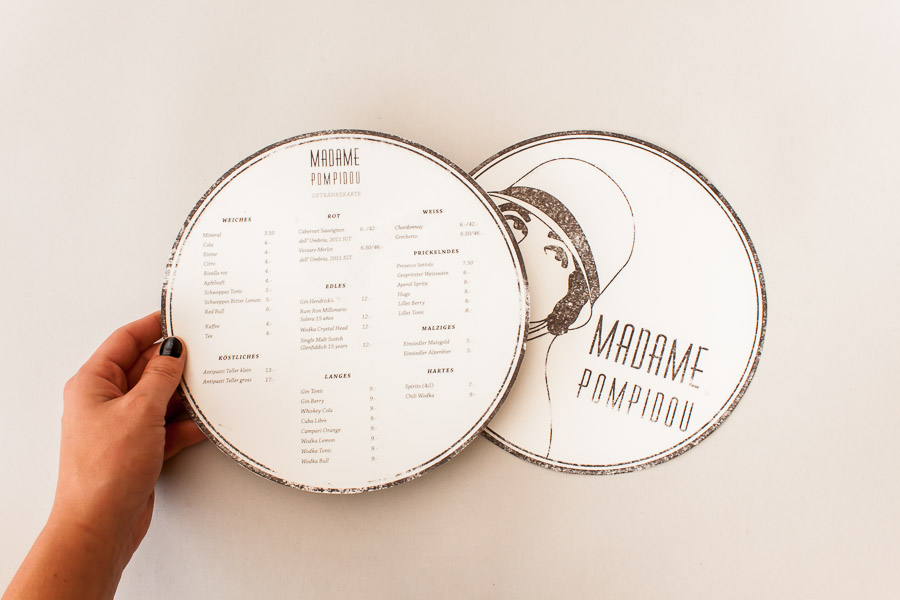 MADAME
POMPIDOU
GETRÄNKEKARTE
WEICHES
Mineral 3.50
Cola 4.-
Eistee 4.-
Citro 4.-
Rivella rot 4.-
Apfelsaft 4.-
Schweppes Tonic 5.-
Schweppes Bitter Lemon 5.-
Red Bull 6.-
Kaffee 4.-
Tee 4.-
KÖSTLICHES
Antipasti Teller klein 13.-
Antipasti Teller gross 17.-
ROT
Cabernet Sauvignon 6.-/42.-
dell' Umbria, 2011 IGT
Vensure Merlot 6.50/46.-
dell' Umbria, 2011 IGT
EDLES
Gin Hendrick's 12.-
Rum Ron Millonario
Solera 15 años 12.-
Wodka Crystal Head 12.-
Single Malt Scotch
Glenfiddich 15 years 12.-
LANGES
Gin Tonic 9.-
Gin Berry 9.-
Whiskey Cola 9.-
Cuba Libre 9.-
Campari Orange 9.-
Wodka Lemon 9.-
Wodka Tonic 9.-
Wodka Bull 9.-
WEISS
Chardonnay 6.-/42.-
Grechetto 6.50/46.-
PRICKELNDES
Prosecco 7.50
Gespritzter Weisswein 6.-
Aperol Spritz 8.-
Hugo 8.-
Lillet Berry 8.-
Lillet Tonic 8.-
MALZIGES
Einsiedler Maisgold 5.-
Einsiedler Alpenbier 5.-
HARTES
Spirits (4cl) 7.-
Chili Wodka 7.-
MADAME
POMPIDOU